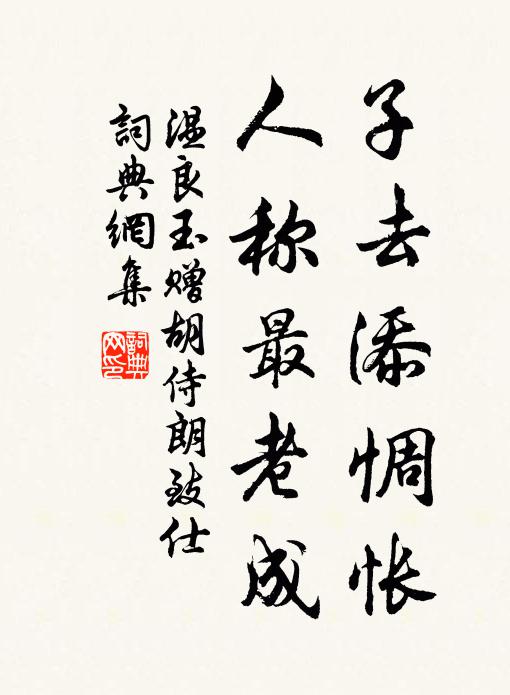 子去添惆怅
人称最老成
温良玉赠胡侍朗致仕
詞典網集
詞典網印